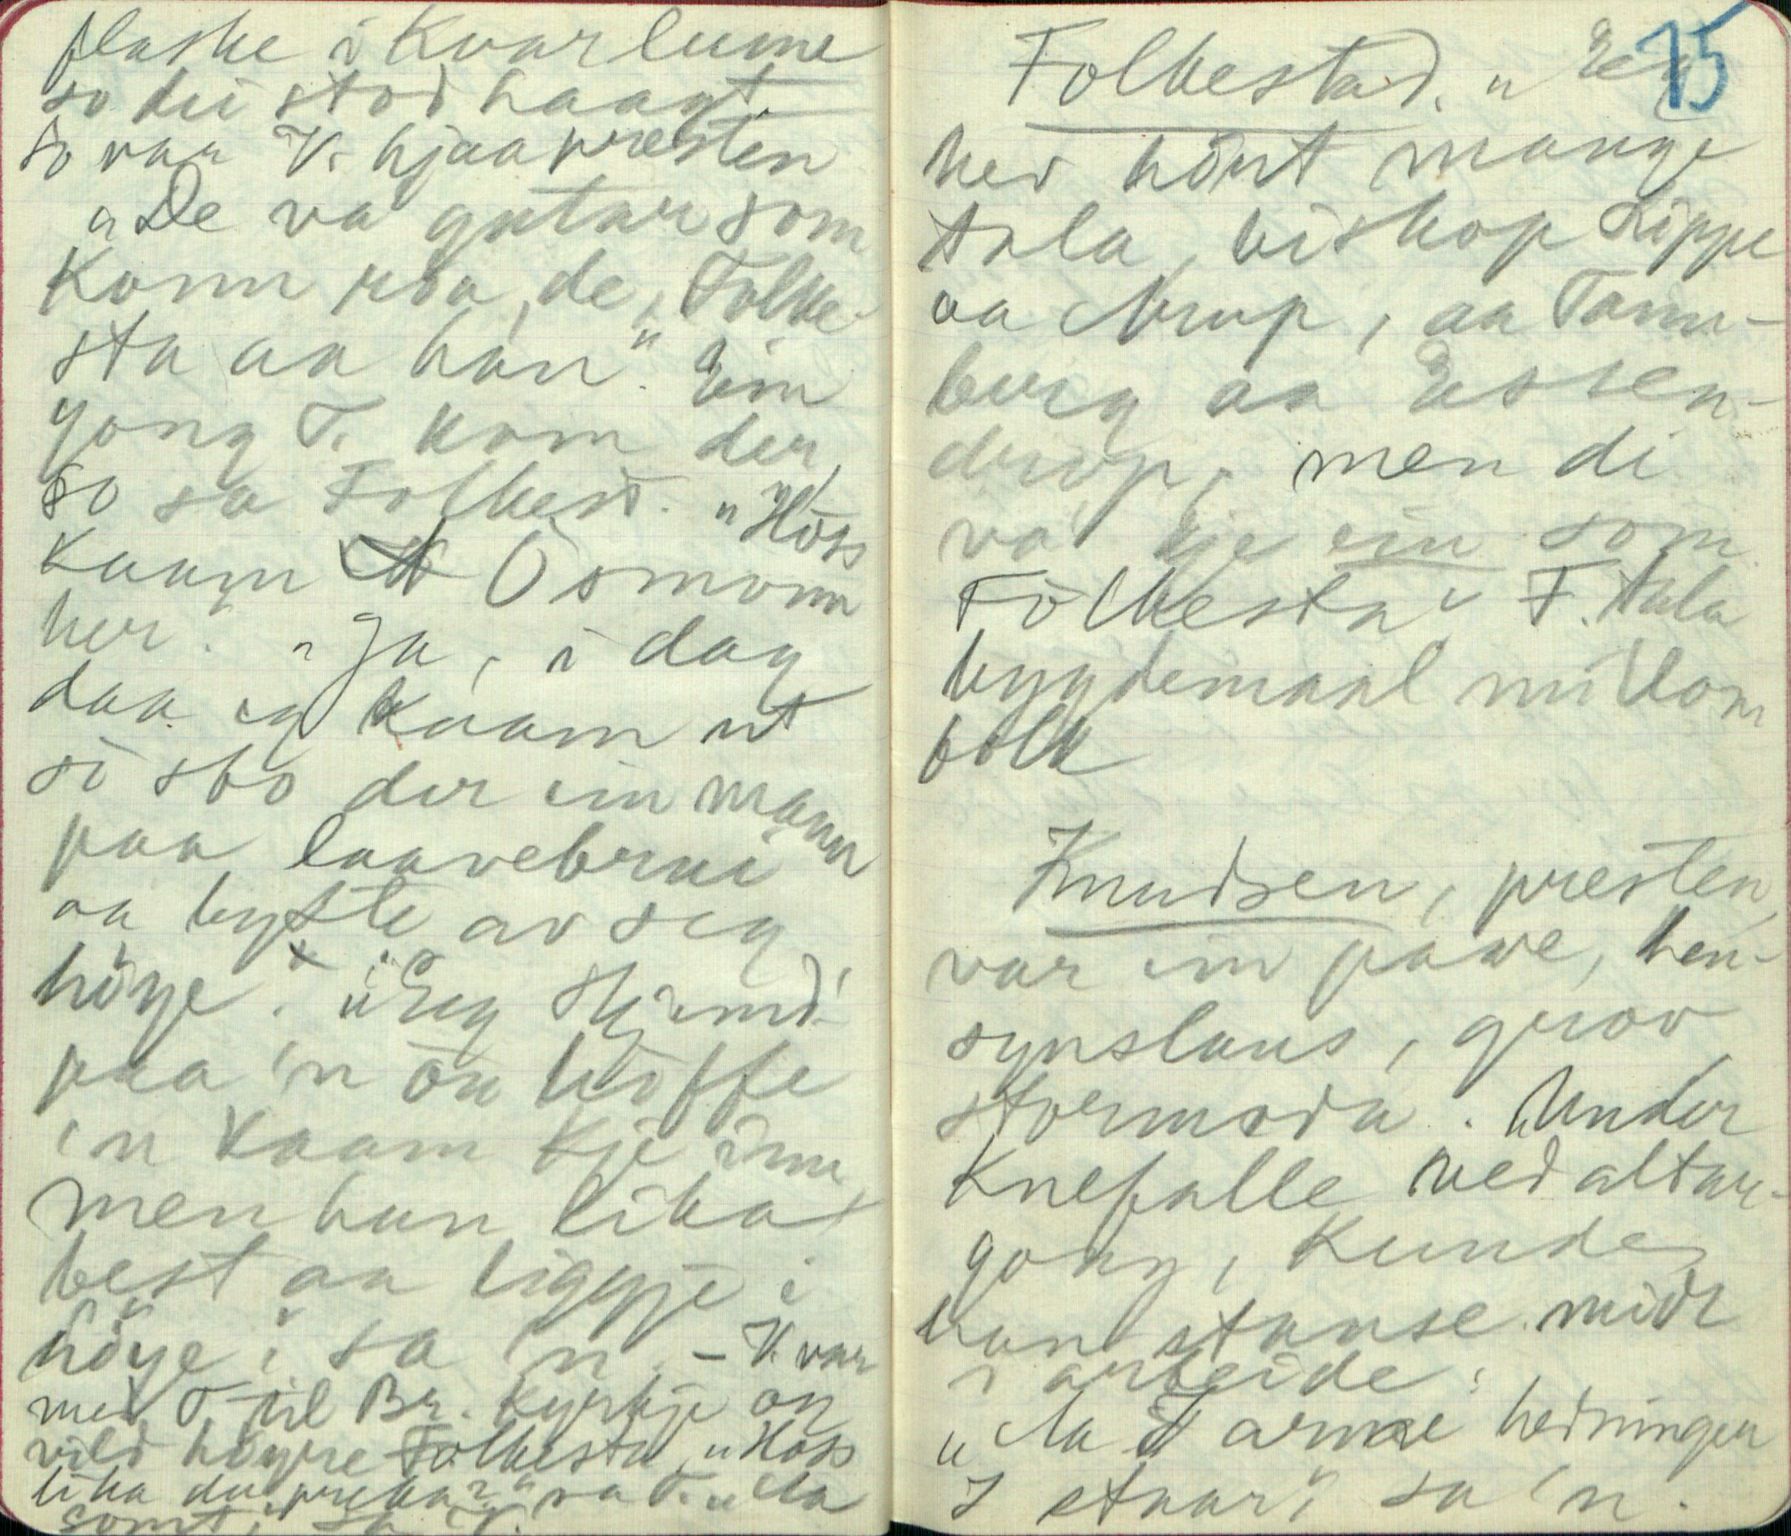 flaske i kvar lume
so dei stod haagt.
So var V. hjaa presten
"De va gutar som
konn prøa, de, Folke-
sta aa han". Ein
gong T. kom der,
so sa Folkest. "Höss
kaam Ösmonn
her". "Ja, i dag
daa eg kaam ut
so sto der ein mann
paa laavebrui
aa byste av seg
höye". "Eg skjemd
paa 'n öu höffe
'n kaam kje inn,
men han lika
best aa liggje i
höye", sa 'n. - V. var
med T til Bø. kyrkje og
vild höyre Folkesta, "Höss
lika du preka?" sa T. "Aa
somt", sa V.
Folkestad. "Eg
75
hev hört mange
tala, biskop Sippe
aa Arup, aa Tann-
berg aa Essen-
drop, men di
va kje ein som
Folkesta" F. tala
bygdemaal millom
folk
Knudsen, presten,
var ein pave, hen-
synslaus, grov,
stormoda. Under
Knefalle ved altar-
gong, kunde
han stanse midt
i arbeide:
"Aa I arme hedningen
I staar", sa 'n.